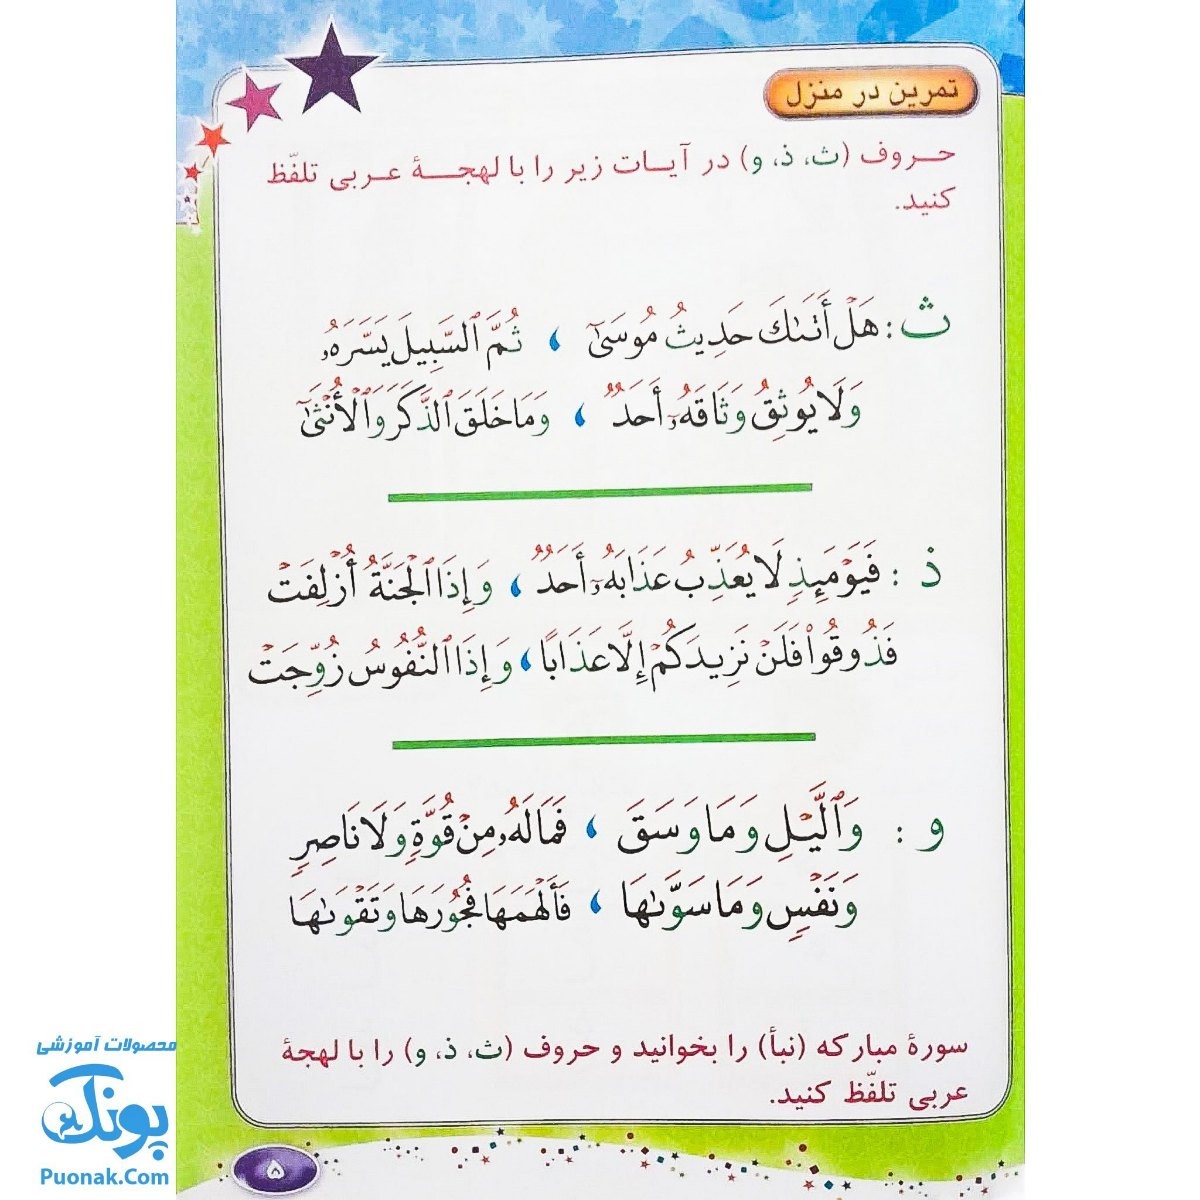 تمرین در منزل
حروف (ث، ذ، و) در آیات زیر را با لهجهٔ عربی تلفّظ
کنید.
ث : هَلْ أَتَىٰكَ حَدِيثُ مُوسَىٰٓ ، ثُمَّ ٱلسَّبِيلَ يَسَّرَهُۥ
وَلَا يُوثِقُ وَثَاقَهُۥٓ أَحَدٌ ، وَمَا خَلَقَ ٱلذَّكَرَ وَٱلْأُنثَىٰٓ
ذ : فَيَوْمَئِذٍ لَا يُعَذِّبُ عَذَابَهُۥٓ أَحَدٌ ، وَإِذَا ٱلْجَنَّةُ أُزْلِفَتْ
فَذُوقُوا۟ فَلَنْ نَزِيدَكُمْ إِلَّا عَذَابًا ، وَإِذَا ٱلنُّفُوسُ زُوِّجَتْ
و : وَٱلَّيْلِ وَمَا وَسَقَ ، فَمَا لَهُۥ مِنْ قُوَّةٍ وَلَا نَاصِرٍ
وَنَفْسٍ وَمَا سَوَّىٰهَا ، فَأَلْهَمَهَا فُجُورَهَا وَتَقْوَىٰهَا
سورهٔ مبارکه (نبأ) را بخوانید و حروف (ث، ذ، و) را با لهجهٔ
عربی تلفّظ کنید.
۵
محصولات آموزشی
پونک
Puonak.Com